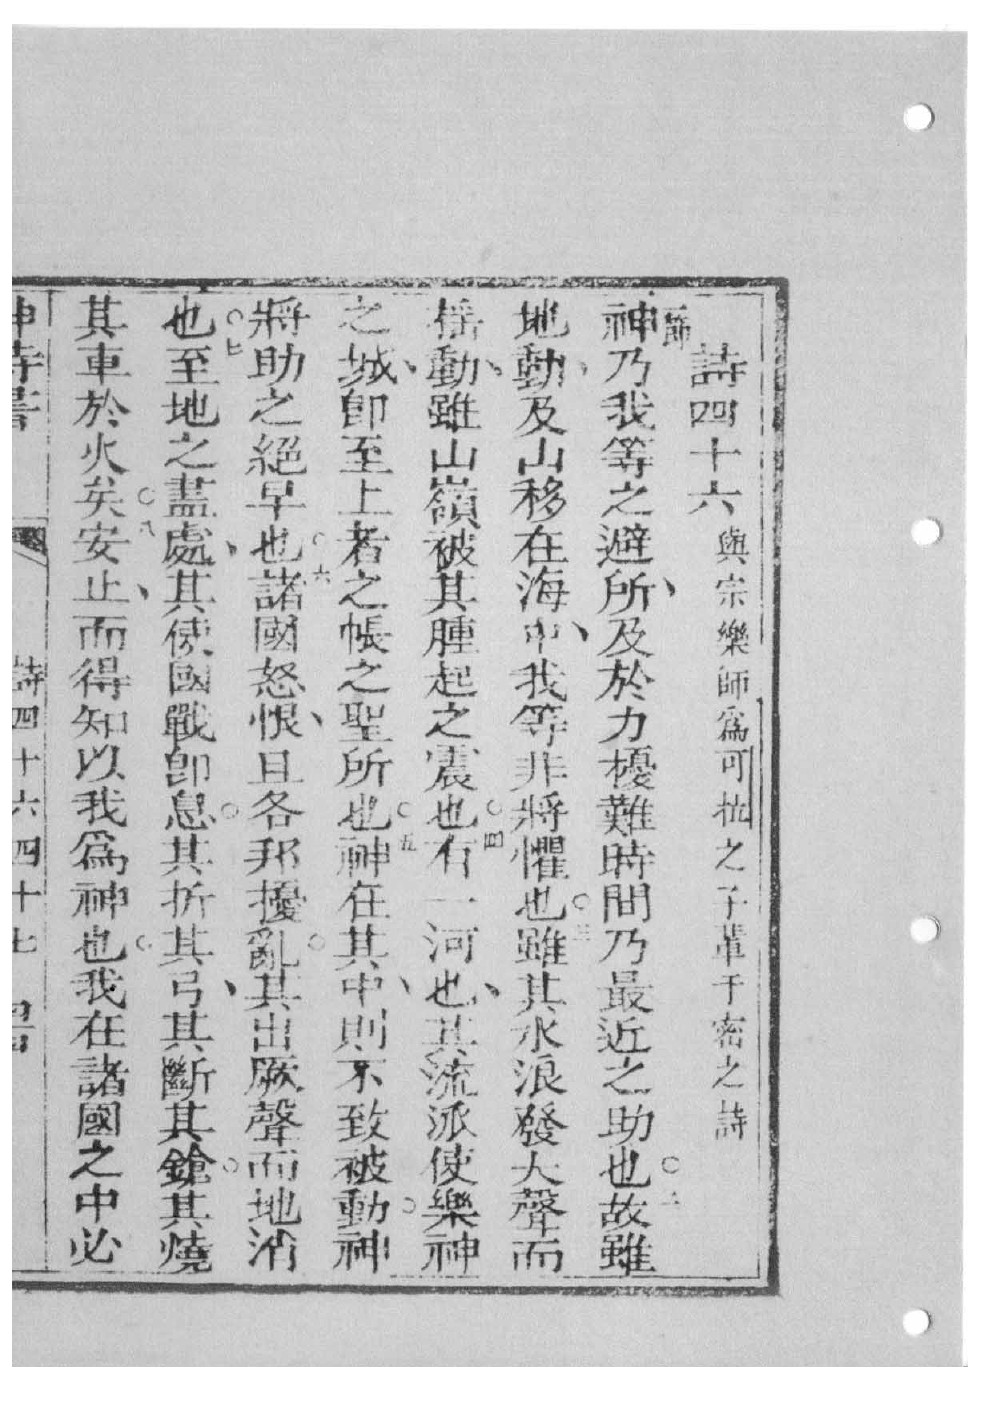 詩四十六 與宗樂師爲可拉之子輩千密之詩
一節神乃我等之避所、及於力擾難時間乃最近之助也○二故雖
地動、及山移在海中、我等非將懼也○三雖其水浪發大聲而
搖動、雖山嶺被其腫起之震也○四有一河也、其流派使樂神
之城、卽至上者之帳之聖所也○五神在其中、則不致被動○神
將助之絕早也○六諸國怒恨、且各邦擾亂○其出厥聲而地消
也○七至地之盡處、其使國戰卽息○其折其弓、其斷其鎗○其燒
其車於火矣○八安止、而得知以我爲神也○我在諸國之中必
神詩書 詩四十六四十七